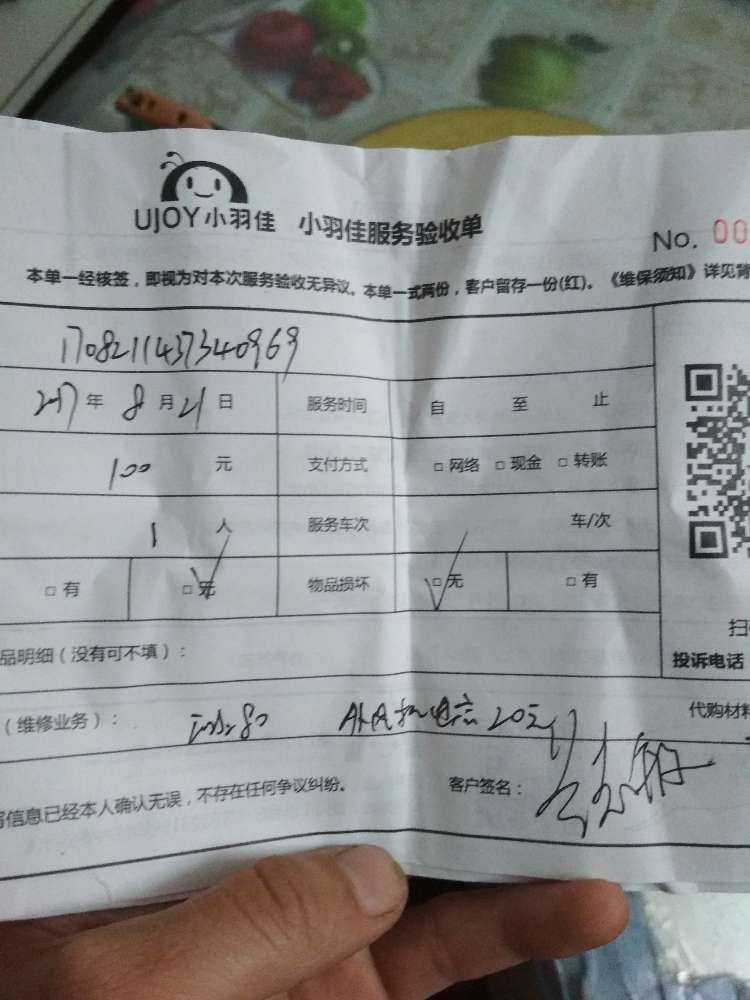 UJOY小羽佳 小羽佳服务验收单
No. 00
本单一经核签，即视为对本次服务验收无异议。本单一式两份，客户留存一份(红)。《维保须知》详见背
1708211437340969
2017年 8月21日 服务时间 自 至 止
100 元 支付方式 □网络 □现金 □转账
1 人 服务车次 车/次
□有 □无 物品损坏 □无 □有
品明细（没有可不填）：
投诉电话
（维修业务）： 80 外风机电容20元
代购材料
写信息已经本人确认无误，不存在任何争议纠纷。 客户签名：